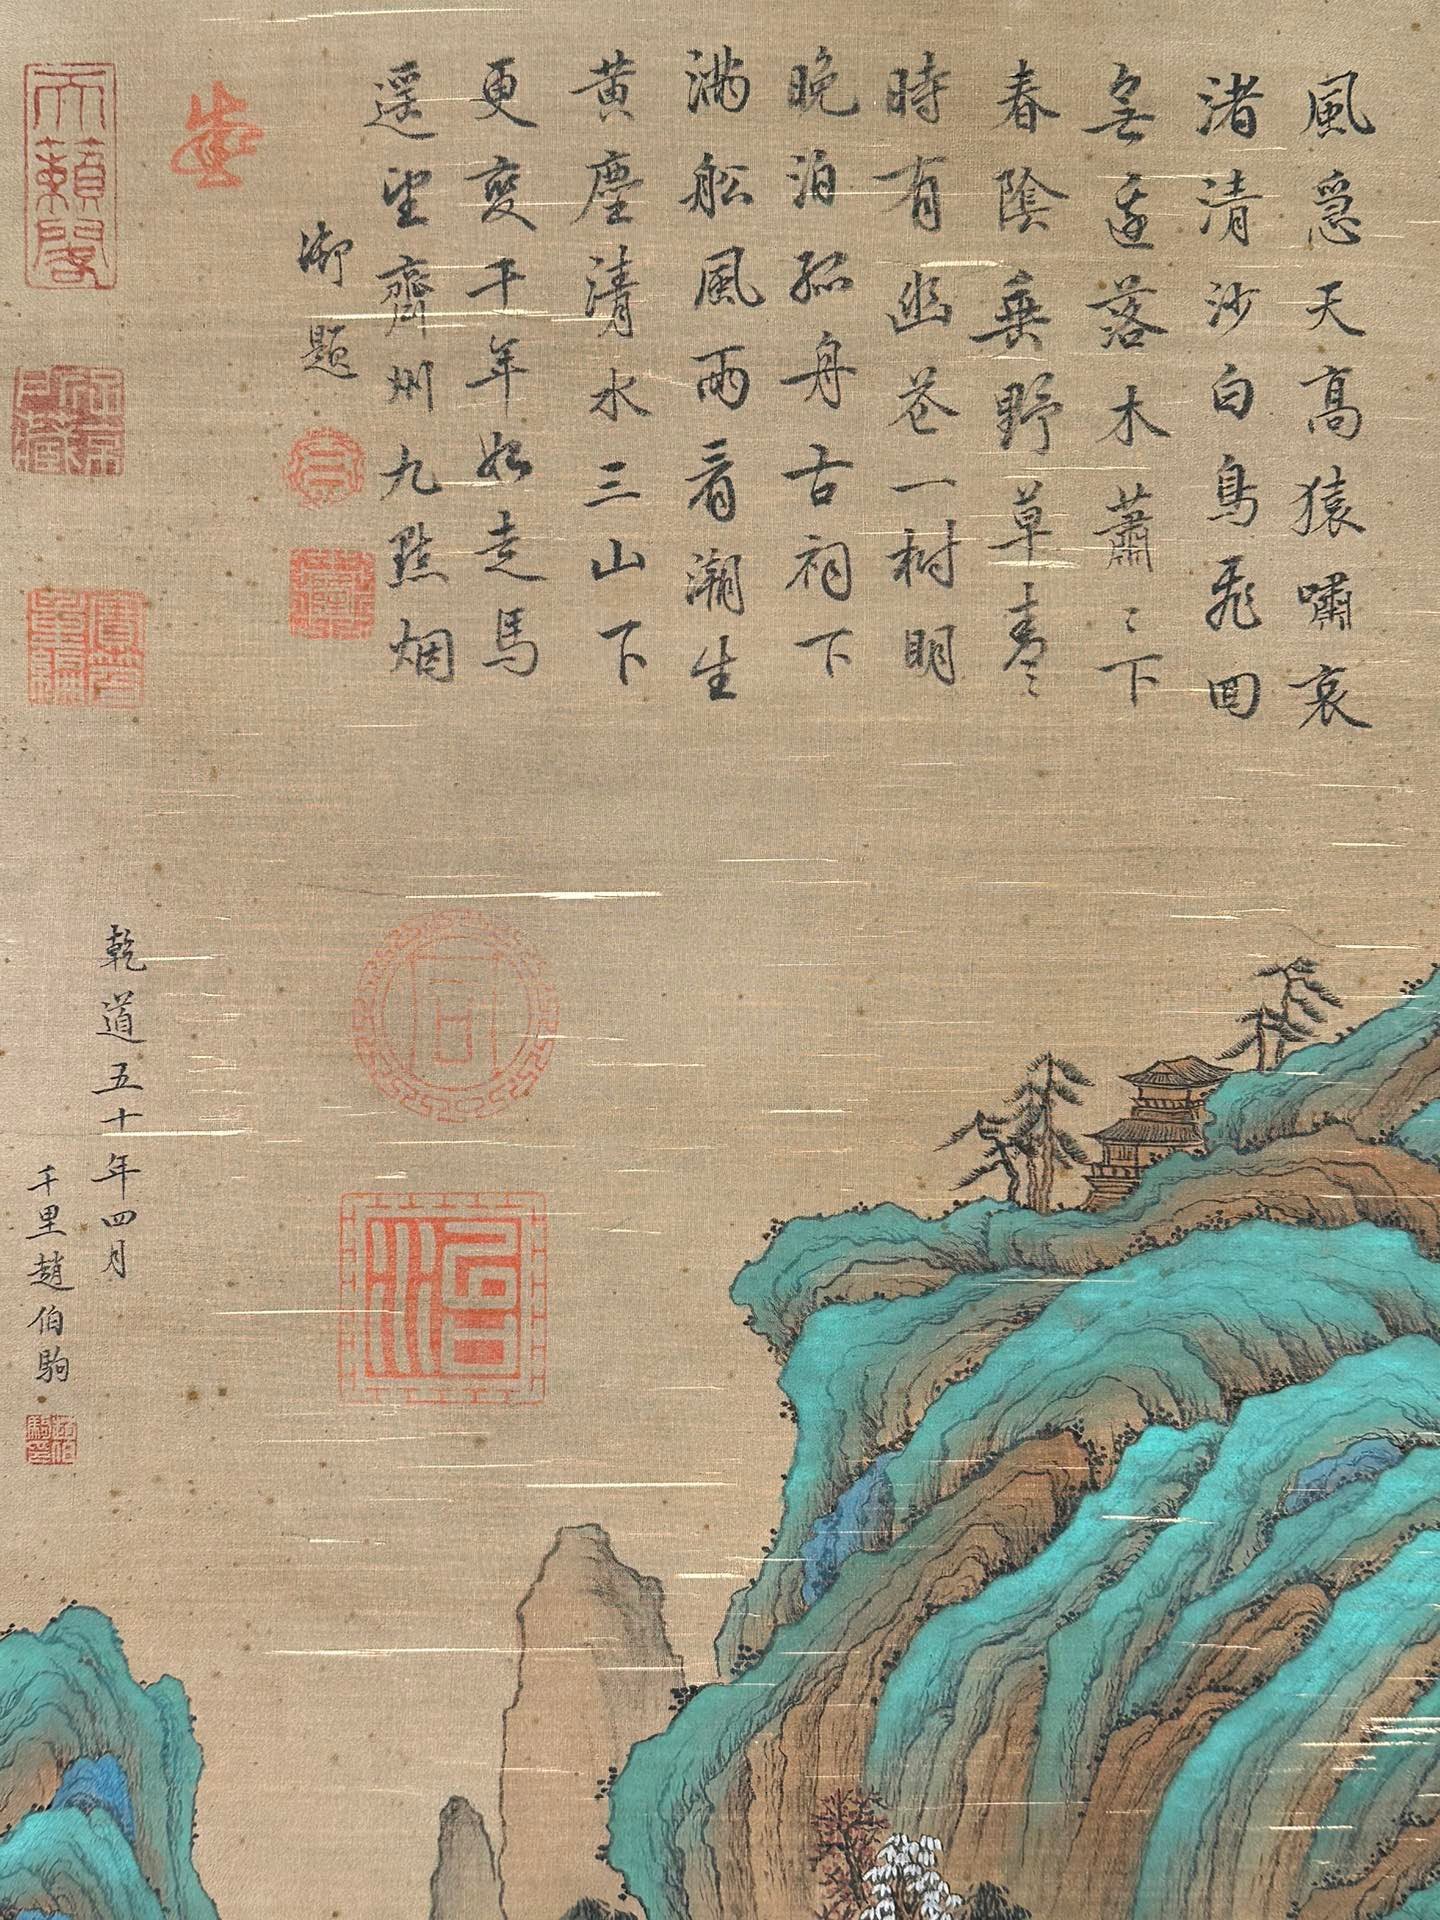 風急天高猿嘯哀
渚清沙白鳥飛回
無邊落木蕭〻下
春陰垂野草青〻
時有幽花一樹明
晚泊孤舟古祠下
滿船風雨看潮生
黃塵清水三山下
更變千年如走馬
遥望齊州九點烟
御題
天籟閣
乾道五十年四月
千里趙伯駒